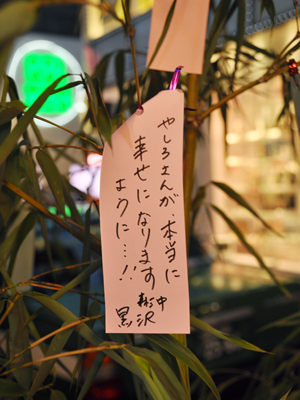 やしろさんが、本当に
幸せになります
ように…!!
中
黒沢